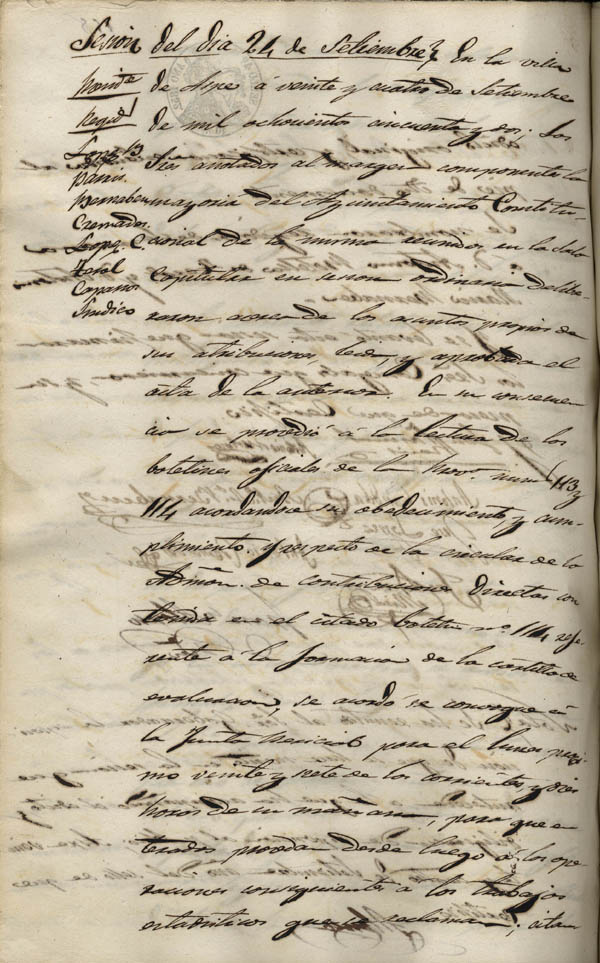 Sesion del dia 24 de Setiembre, En la villa
de Aspe á veinte y cuatro de Setiembre
de mil ochocientos cincuenta y dos: Los
Sres anotados al margen componentes la
mayoria del Ayuntamiento Constitu-
cional de la misma reunidos en la Sala
Capitular en sesion ordinaria delibe-
raron acerca de los asuntos propios de
sus atribuciones, leida, y aprobada el
acta de la anterior. En su consecuen
cia se procedió á la lectura de los
boletines oficiales de la Prov.ª num.s 113 y
114 acordandose su obedecimiento, y cum-
plimiento. Y respecto de la circular de la
Admon. de contribuciones Directas con
tenida en el citado boletin nº 114 refe
rente á la formacion de la cartilla de
evaluacion, se acordó se convoque á
la Junta Pericial para el lunes proxi
mo veinte y siete de los corrientes, y diez
horas de su mañana, para que en
terados procedan desde luego á las ope
raciones consiguientes á los trabajos
estadisticos que se reclaman;
Preside
Regid.
Lopez
Cremades
Lopez C.
Caparros
Sindico